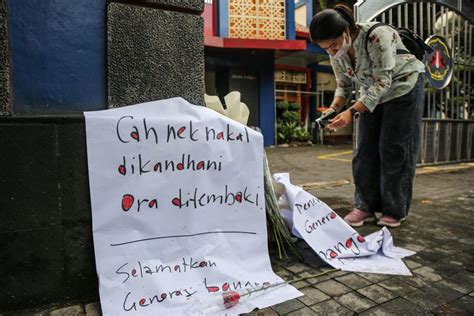 Cah nek nakal
dikandhani
Ora ditembaki
Selamatkan
Generasi bangsa
Generasi